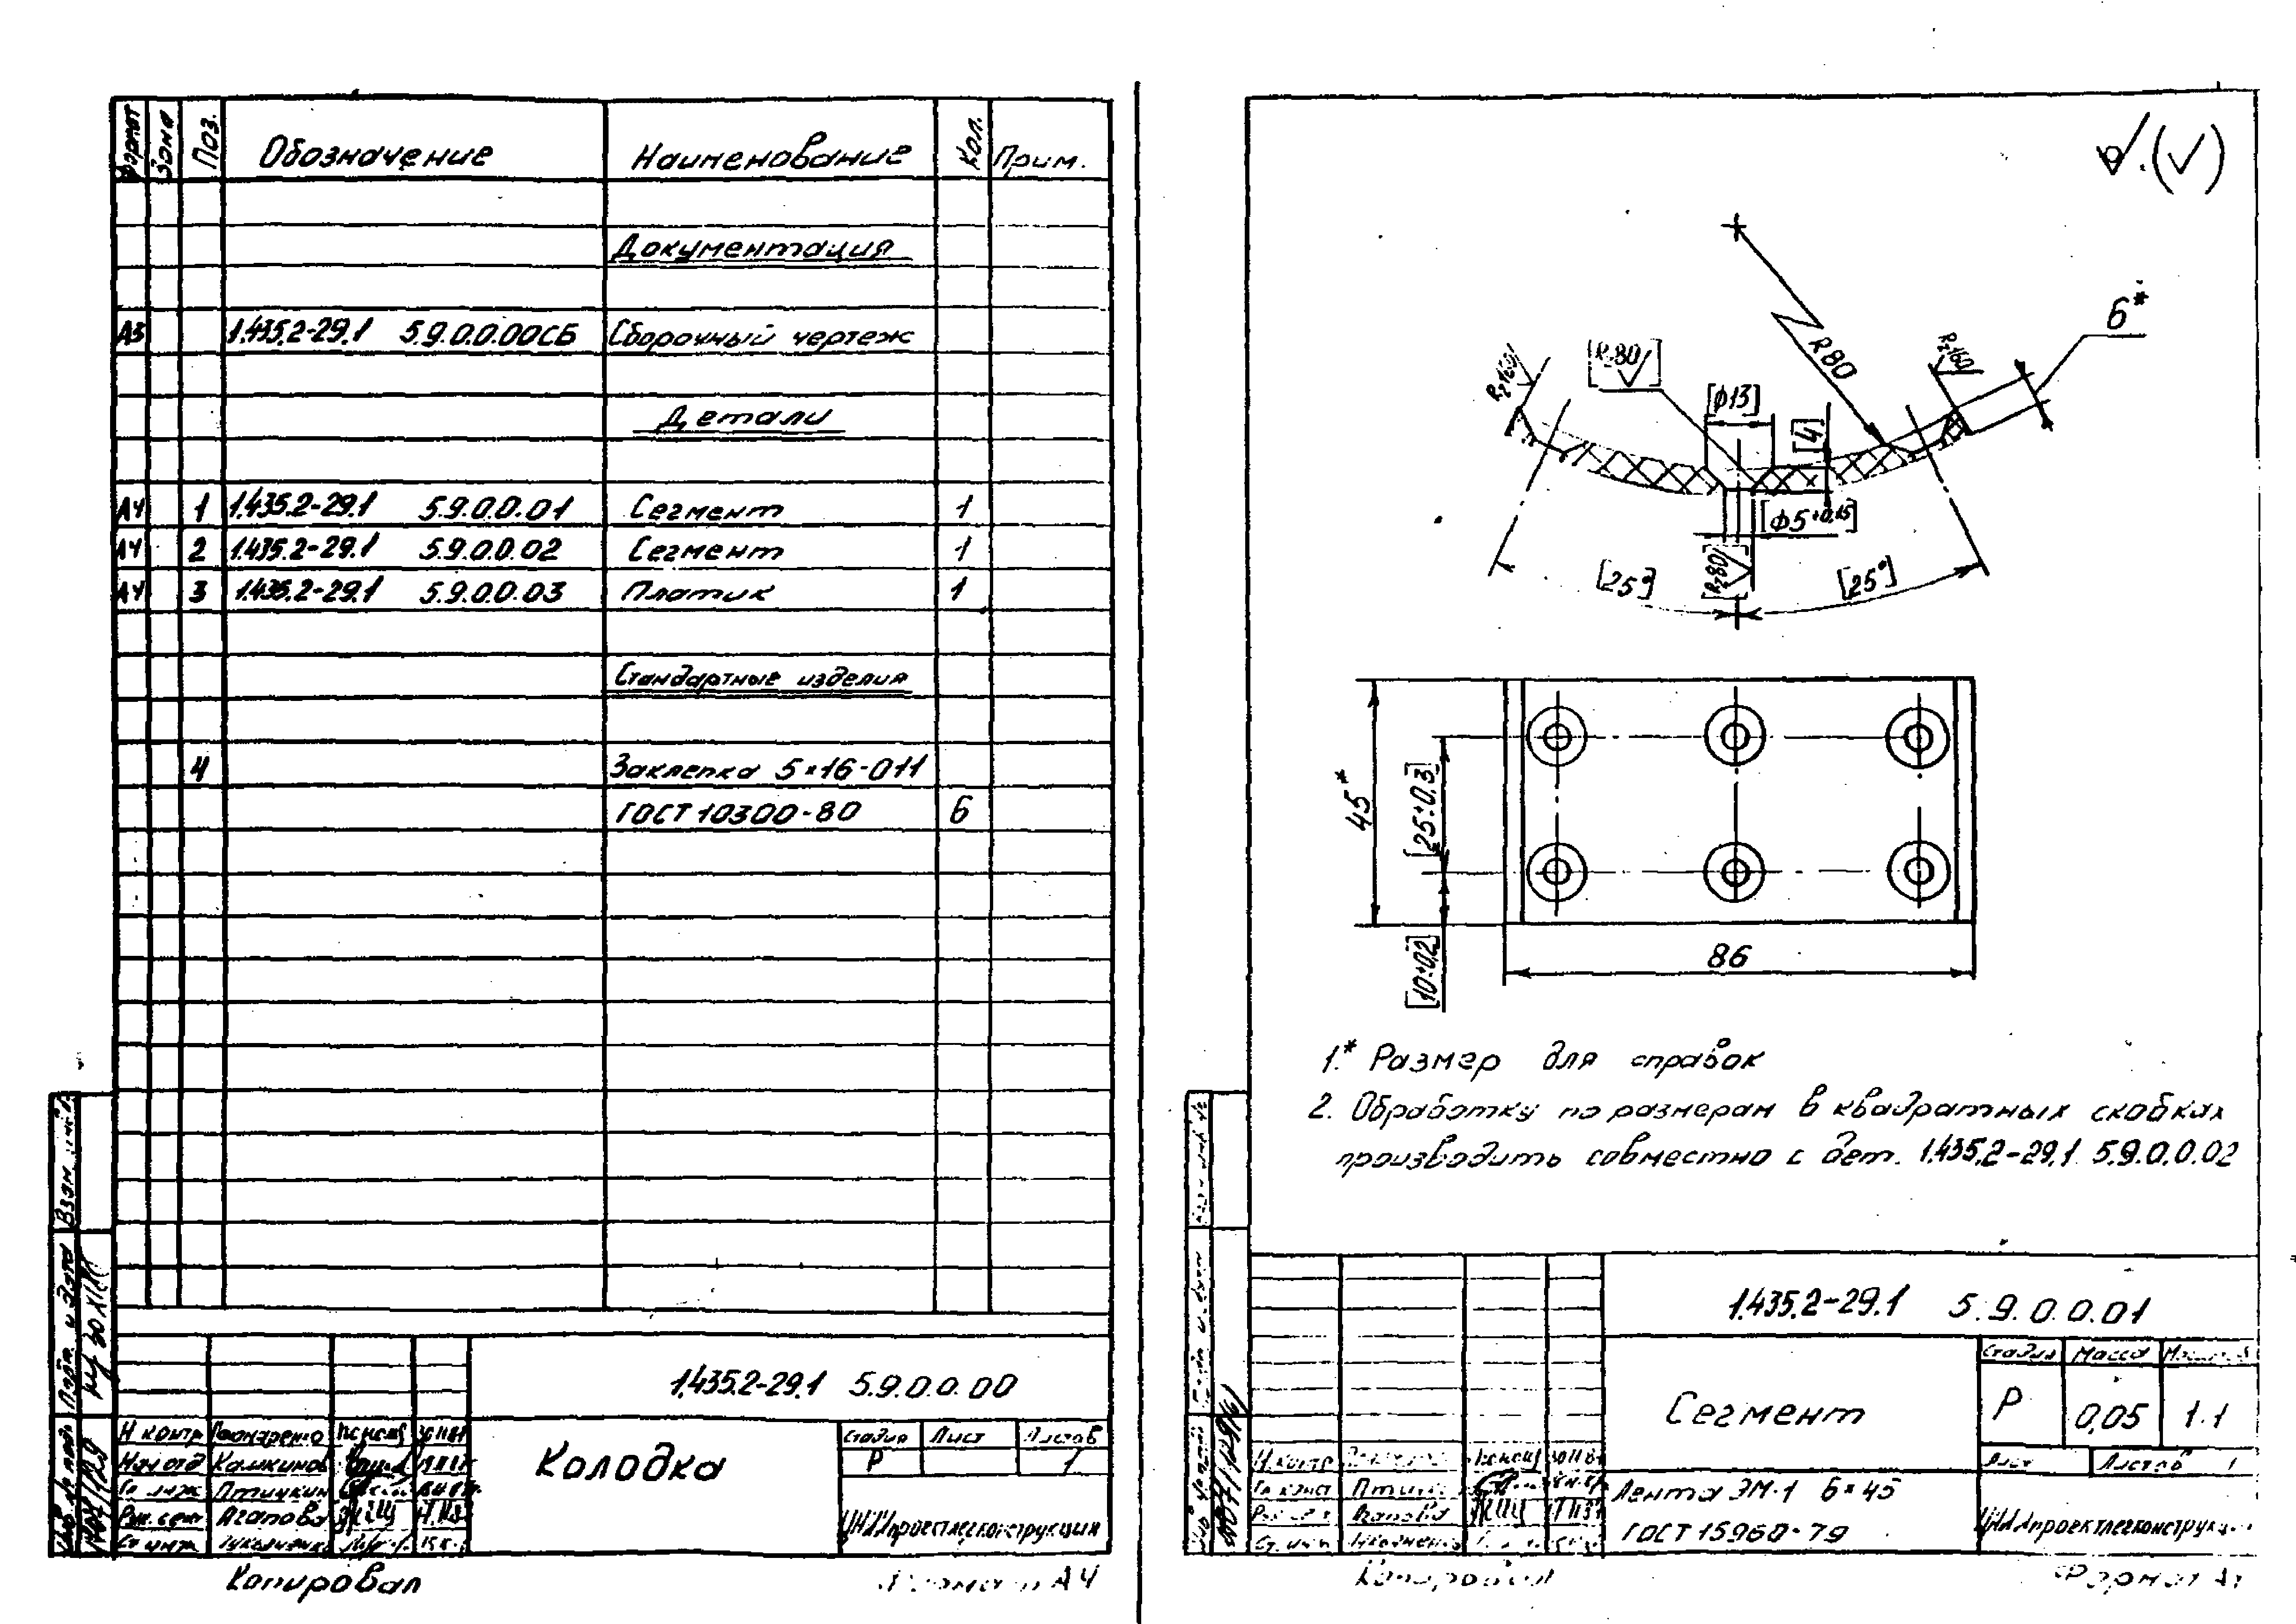 Формат Зона Поз. Обозначение Наименование Кол. Прим.
Документация
А3 1.435.2-29.1 5.9.0.0.00СБ Сборочный чертеж
Детали
А4 1 1.435.2-29.1 5.9.0.0.01 Сегмент 1
А4 2 1.435.2-29.1 5.9.0.0.02 Сегмент 1
А4 3 1.435.2-29.1 5.9.0.0.03 Платик 1
Стандартные изделия
4 Заклепка 5×16-011
ГОСТ 10300-80 6
Взам. инв.
Подп. и дата
1.435.2-29.1 5.9.0.0.00
Н контр
Нач отд Камкинов
Гл инж Птицкин
Рук. сект Агапова
Ст инж
Колодка
Стадия Лист Листов
Р 1
ЦНИИпроектлегконструкция
Копировал
Формат А4
√.(√)
6*
R80
Rz160
[Rz80]
Rz160
[ϕ13]
[4]
[ϕ5+0,15]
[Rz80]
[25°]
[25°]
45*
[25±0,3]
[10±0,2]
86
1.* Размер для справок
2. Обработку по размерам в квадратных скобках
производить совместно с дет. 1.435.2-29.1 5.9.0.0.02
1.435.2-29.1 5.9.0.0.01
Стадия Масса
Сегмент
Р 0,05 1:1
Лист Листов 1
Н.контр
Гл конст
Агапова
Ст. инж
Лента ЭМ-1 6×45
ГОСТ 15960-79
ЦНИИпроектлегконструкция
Копировал
Формат А4